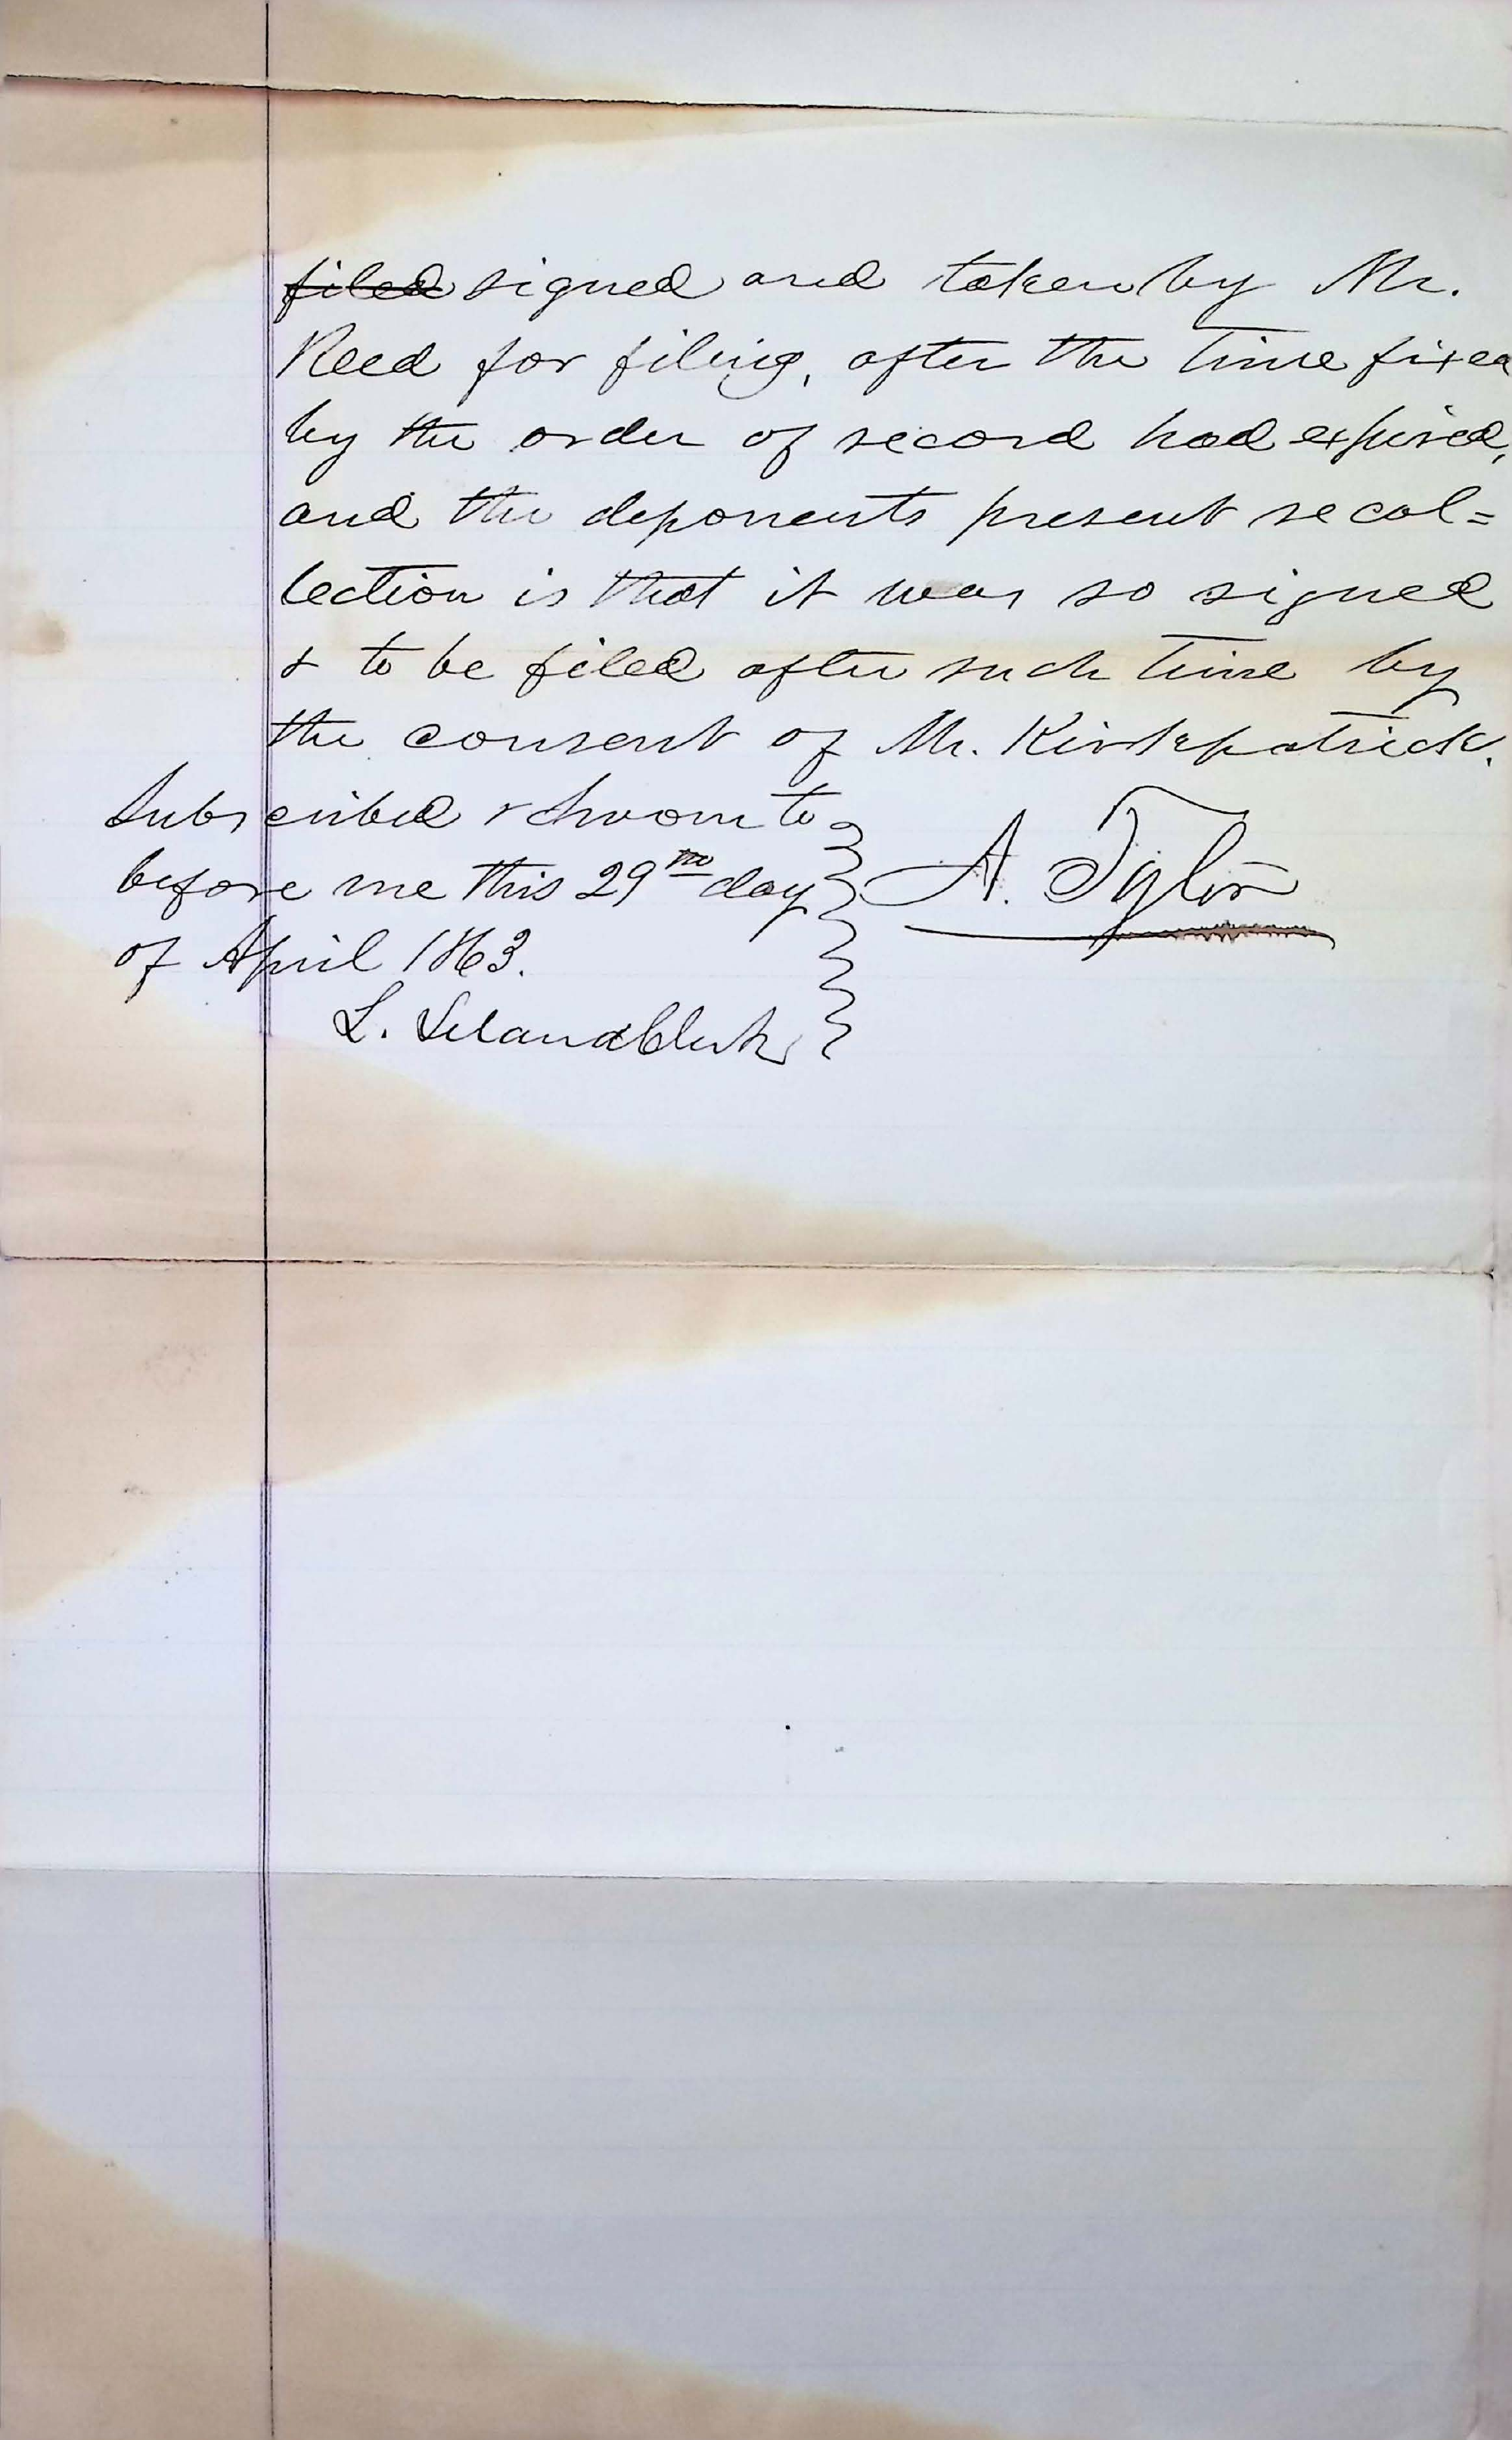 filed signed and taken by Mr.
Reed for filing, after the time fixed
by the order of record had expired,
and the deponents present recol=
lection is that it was so signed
& to be filed after such time by
the consent of Mr. Kirkpatrick.
Subscribed & sworn to
before me this 29th day
of April 1863.
A. Tyler
L. Leland Clerk